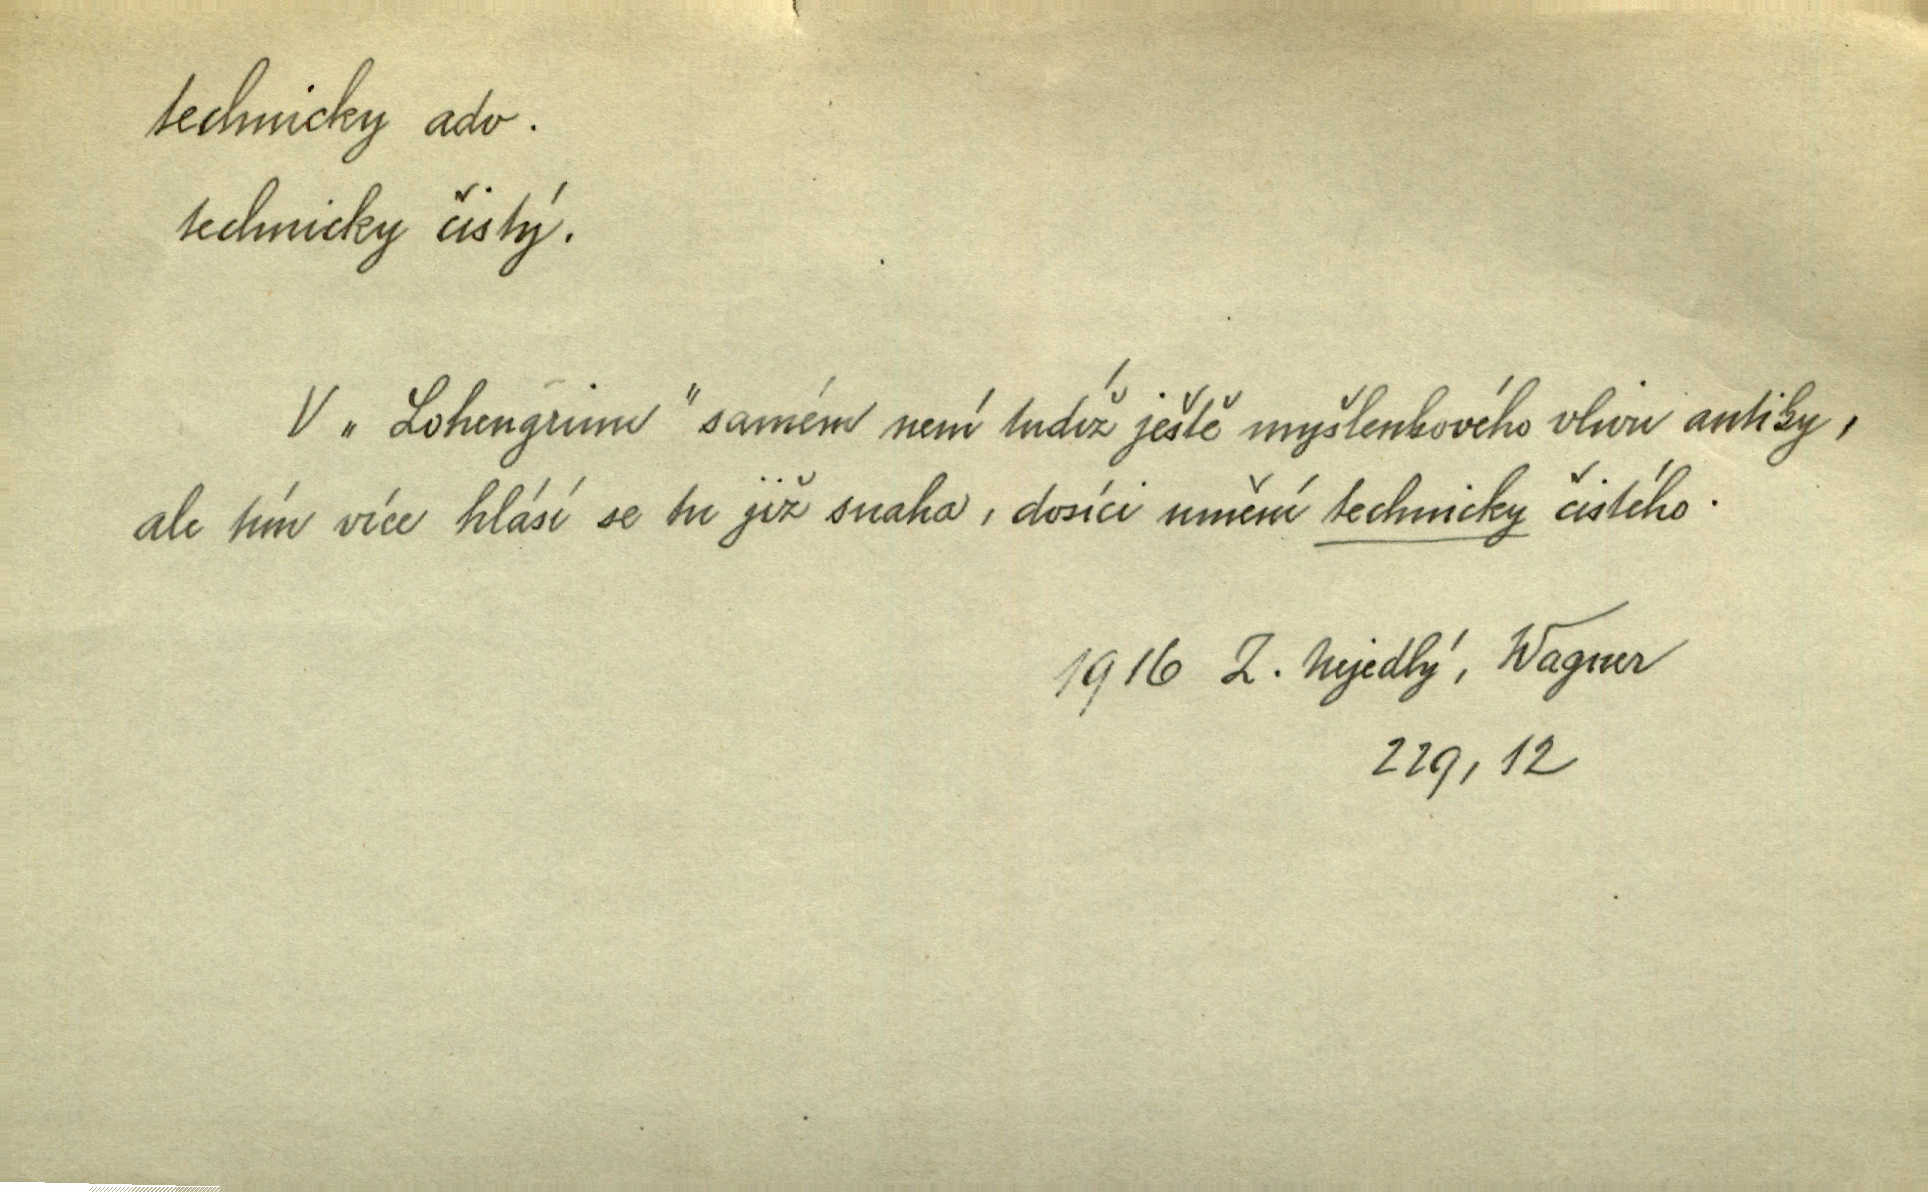 technicky adv.
technicky čistý.
V „Lohengrinu" samém není tudíž ještě myšlenkového vlivu antiky,
ale tím více hlásí se tu již snaha, dosíci umění technicky čistého.
1916 Z. Nejedlý, Wagner
229, 12